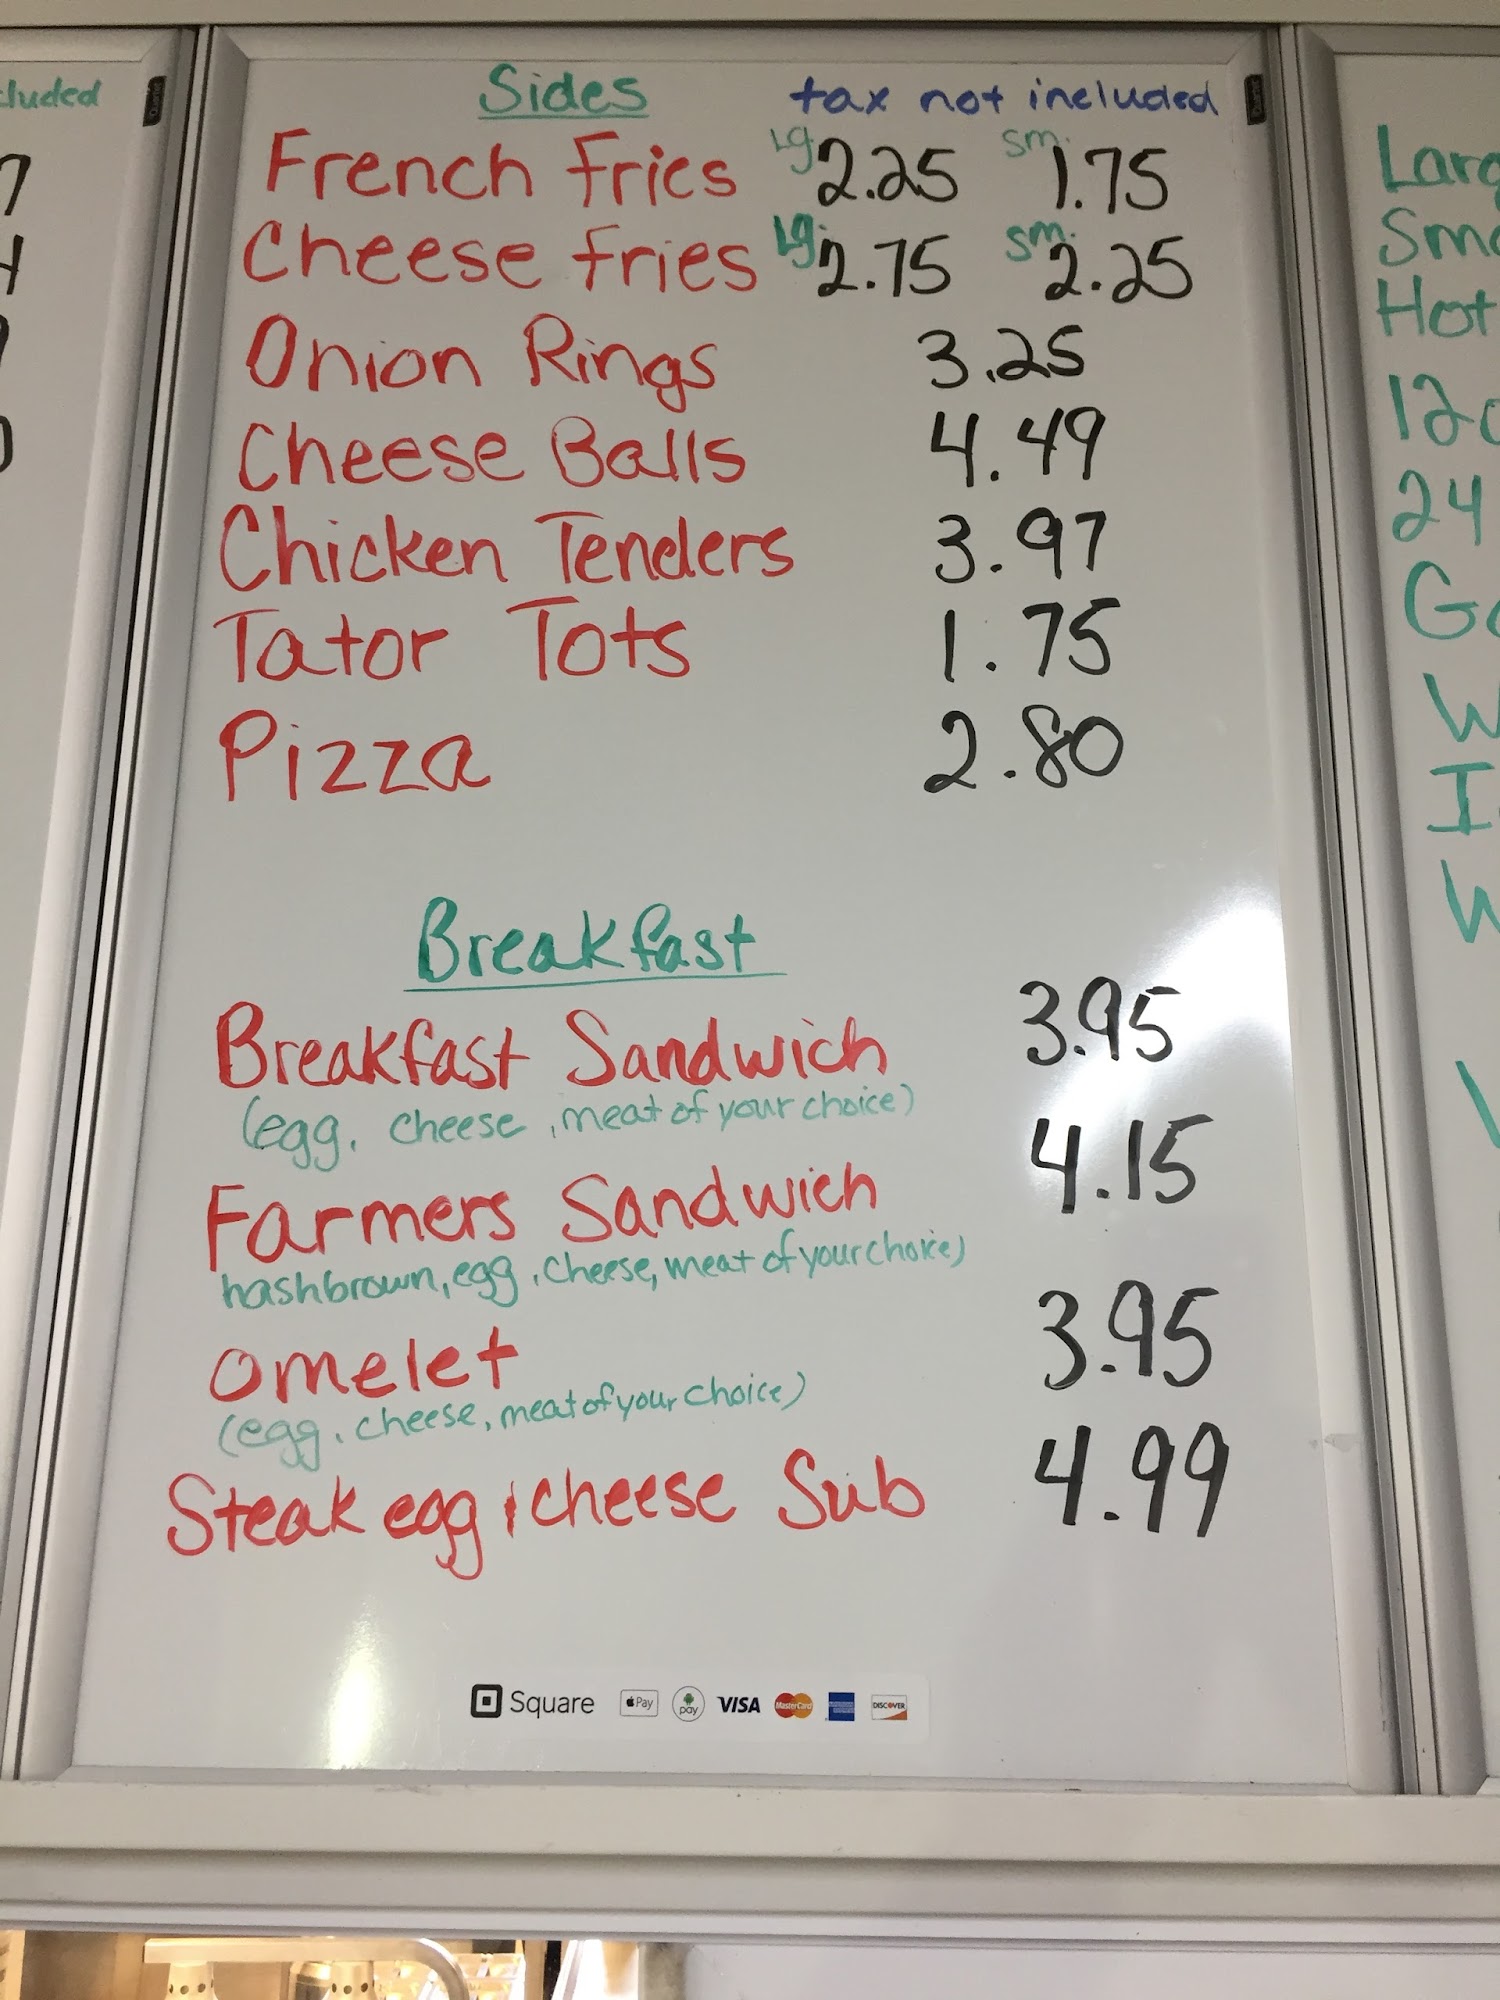 cluded
Sides tax not included
French fries Lg. 2.25 sm. 1.75
Cheese fries Lg. 2.75 sm. 2.25
Onion Rings 3.25
Cheese Balls 4.49
Chicken Tenders 3.97
Tator Tots 1.75
Pizza 2.80
Breakfast
Breakfast Sandwich 3.95
(egg, cheese, meat of your choice)
Farmers Sandwich 4.15
hashbrown, egg, cheese, meat of your choice)
omelet 3.95
(egg, cheese, meat of your choice)
Steak egg & cheese Sub 4.99
Square Pay pay VISA MasterCard DISCOVER
Larg
Sma
Hot
12o
24